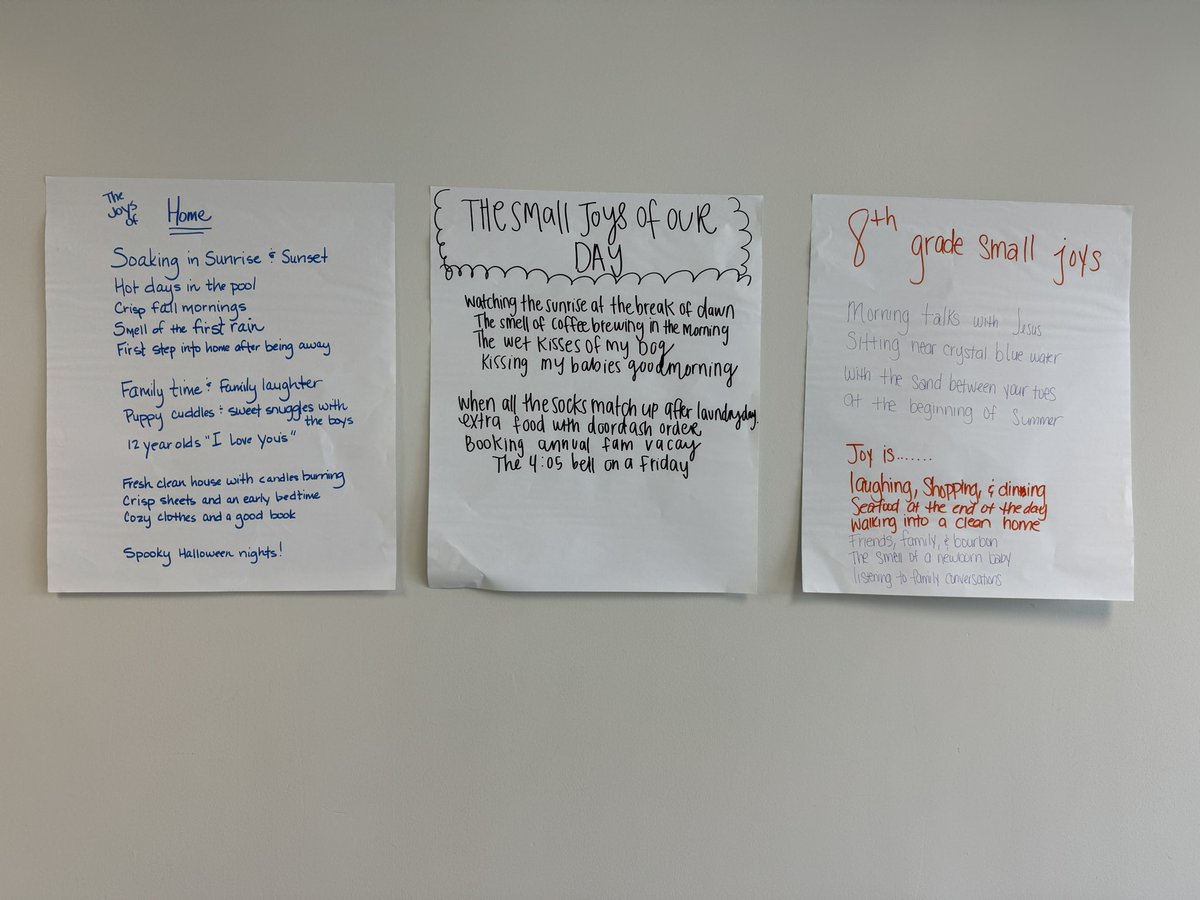 The Joys of Home
Soaking in Sunrise & Sunset
Hot days in the pool
Crisp fall mornings
Smell of the first rain
First step into home after being away
Family time & Family laughter
Puppy cuddles & sweet snuggles with the boys
12 year olds "I love you's"
Fresh clean house with candles burning
Crisp sheets and an early bedtime
Cozy clothes and a good book
Spooky Halloween nights!
THE SMALL JOYS OF OUR
DAY
Watching the sunrise at the break of dawn
The smell of coffee brewing in the morning
The wet kisses of my DOg
Kissing my babies goodmorning
When all the socks match up after laundry day.
extra food with doordash order
Booking annual fam vacay
The 4:05 bell on a Friday
8th grade small joys
Morning talks with Jesus
Sitting near crystal blue water
with the sand between your toes
at the beginning of Summer
Joy is.......
laughing, Shopping, & dinning
Seafood at the end of the day
walking into a clean home
Friends, family, & bourbon
The smell of a newborn baby
listening to family conversations